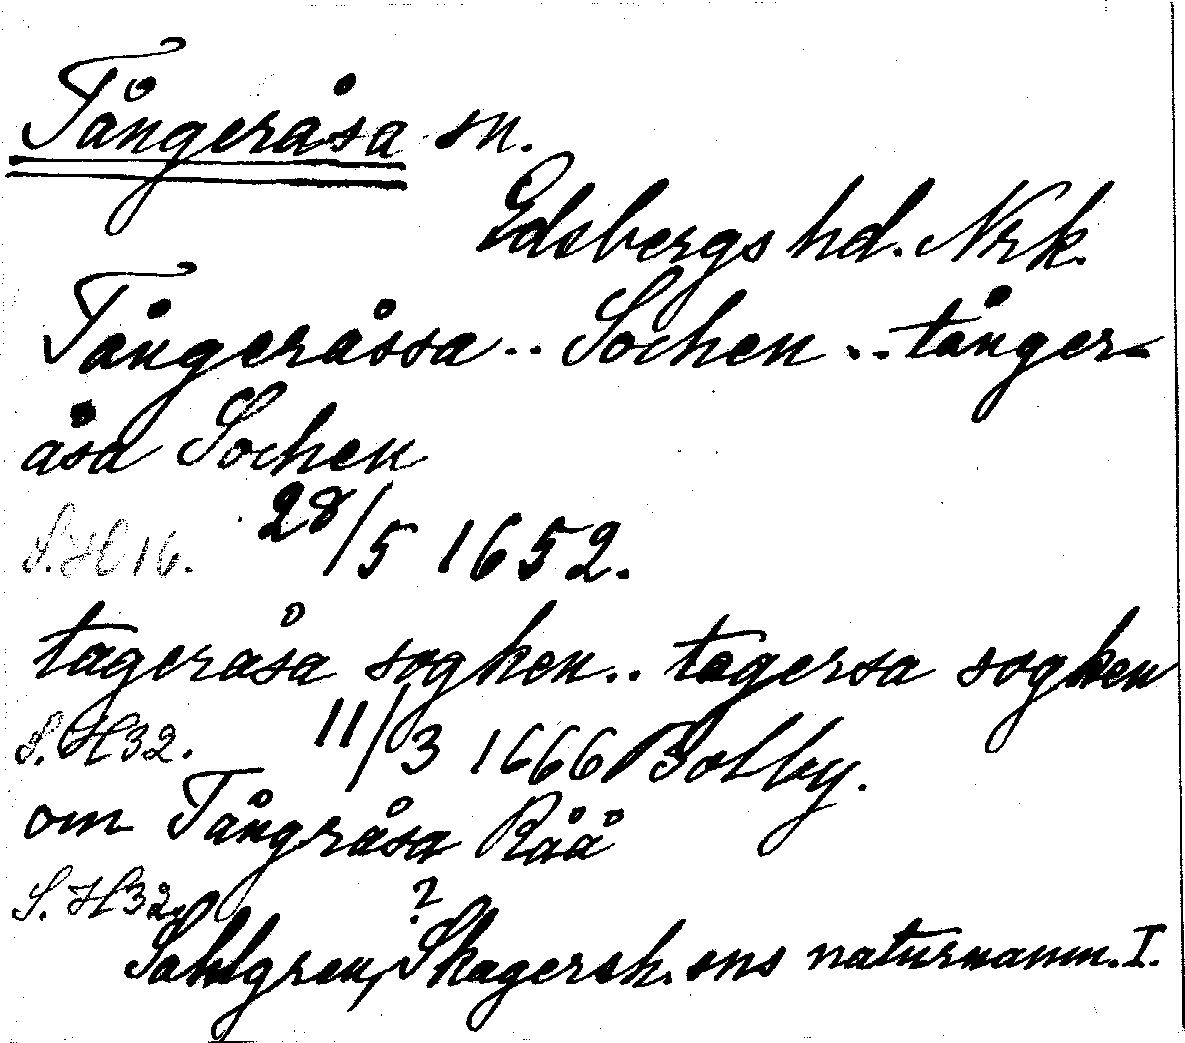 Tångeråsa sn.
Edsbergs hd. Nrk.
Tångeråssa .. Sochen .. tånger-
åsa Sochen
S. H 16. 28/5 1652.
tageråsa soghen .. tagersa soghen
S. H 32. 11/3 1666 Bolby.
om Tångråsa Råå
S. H 32. ?
Sahlgren, Skagersh. sns naturnamn. I.